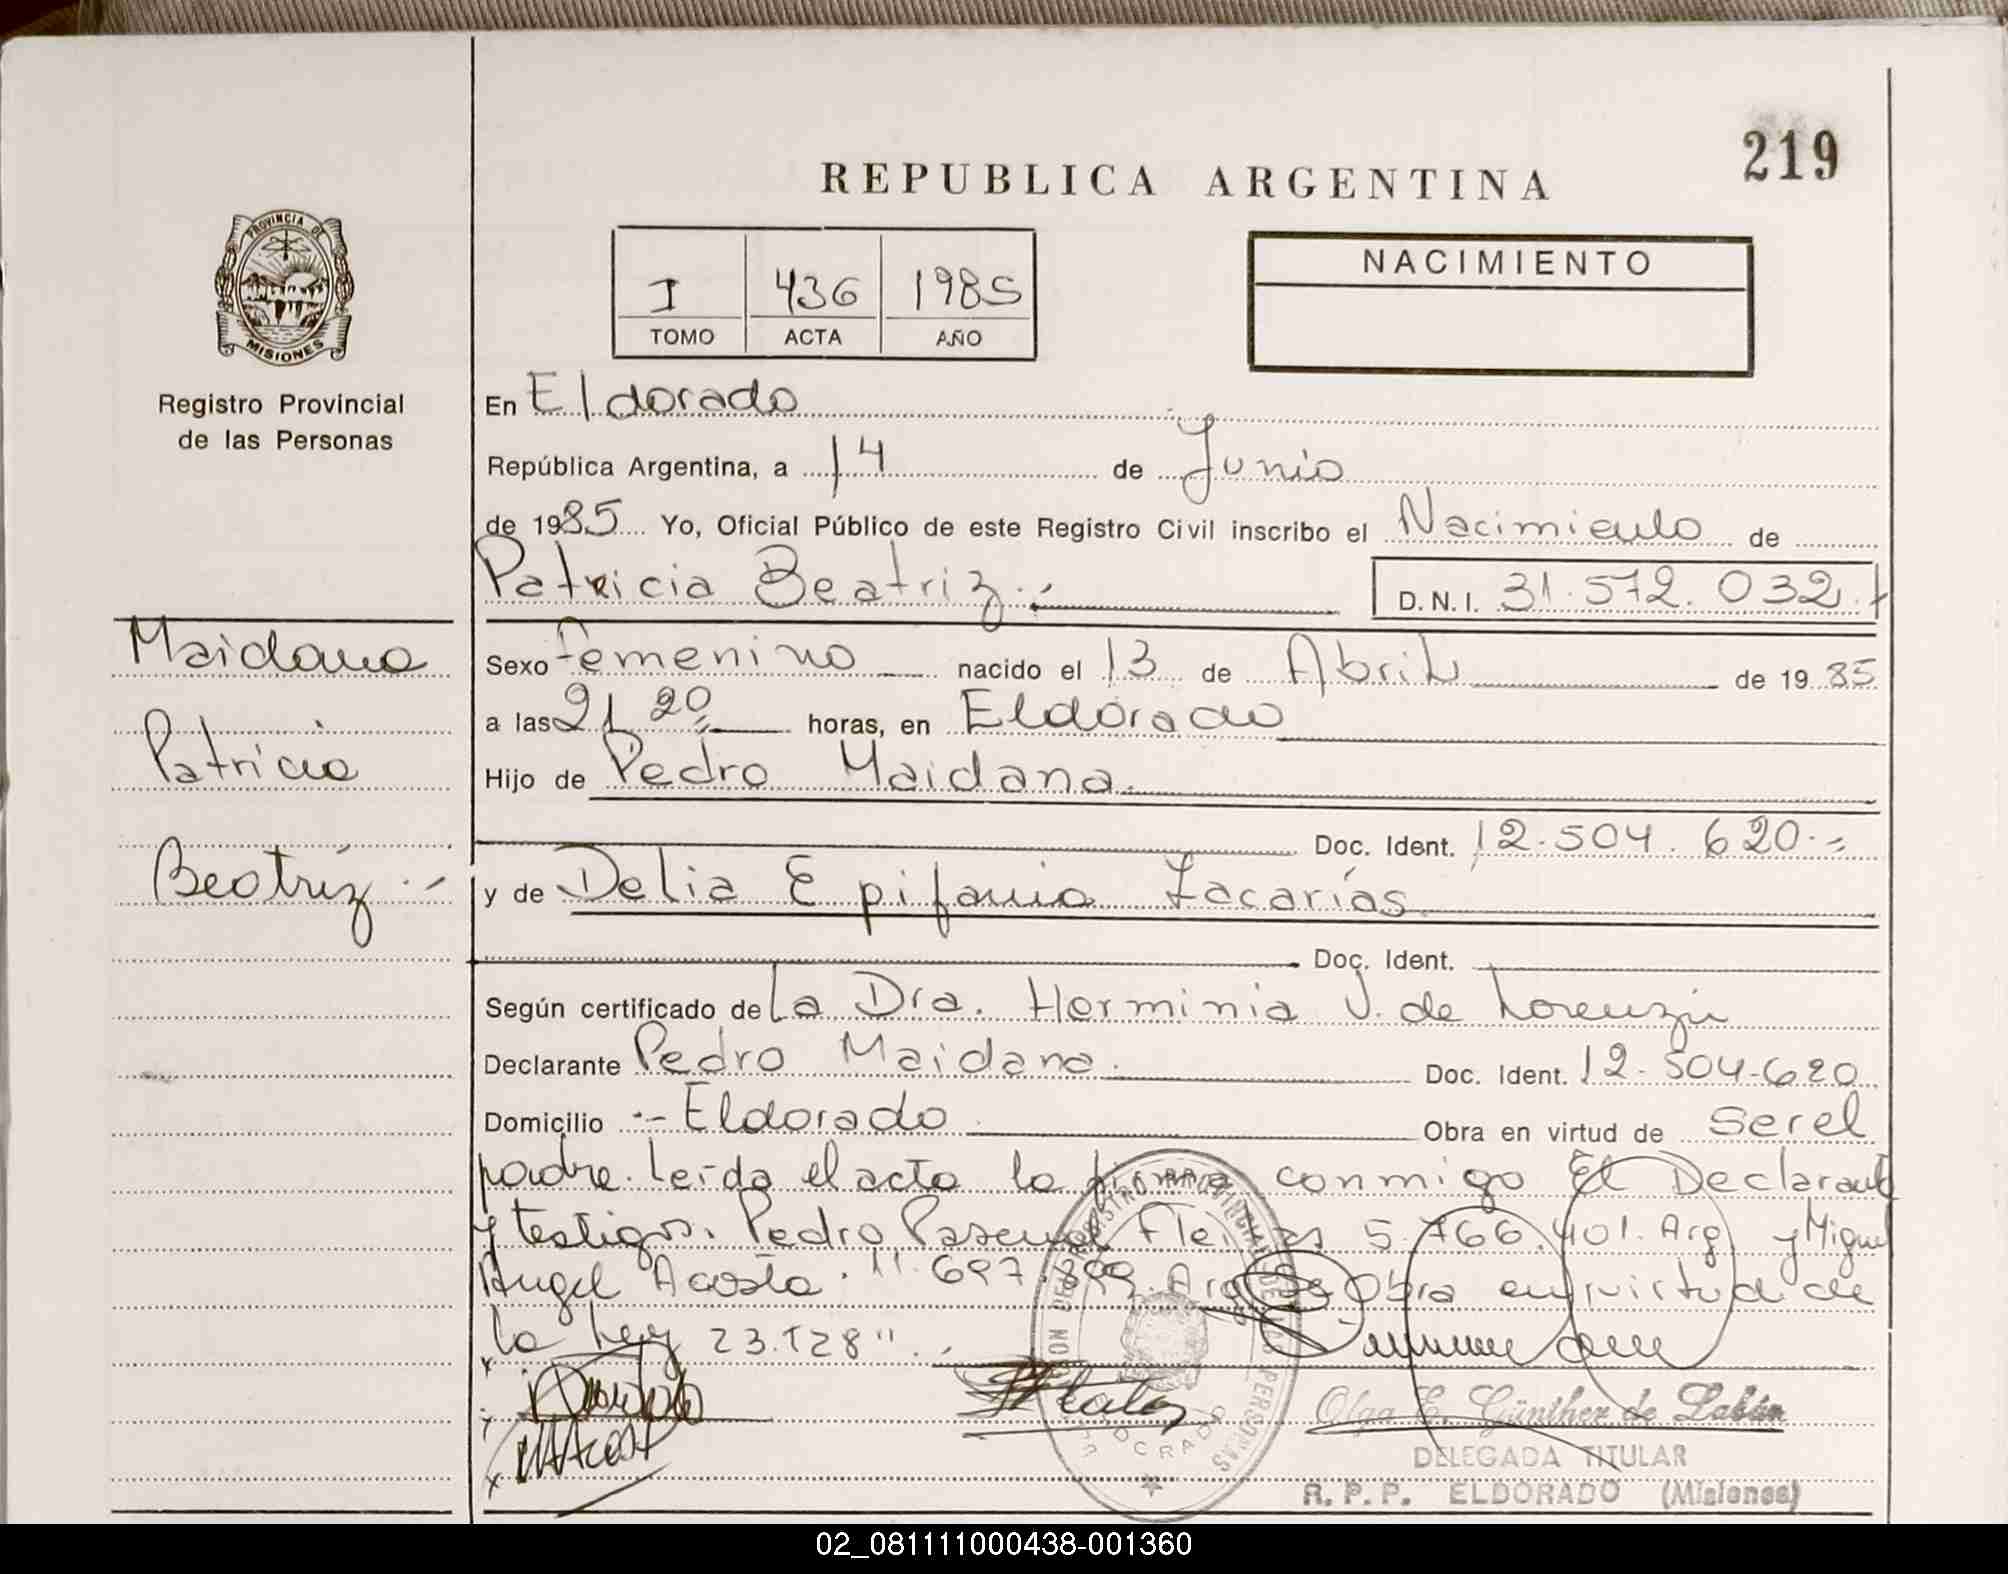 219
REPUBLICA ARGENTINA
PROVINCIA DE
MISIONES
Registro Provincial
de las Personas
I 436 1985
TOMO ACTA AÑO
NACIMIENTO
En Eldorado
República Argentina, a 14 de Junio
de 1985 Yo, Oficial Público de este Registro Civil inscribo el Nacimiento de
Patricia Beatriz.- D.N.I. 31.572.032.
Maidana
Patricia
Beatriz.-
Sexo Femenino nacido el 13 de Abril de 1985
a las 21 20 horas, en Eldorado
Hijo de Pedro Maidana.
Doc. Ident. 12.504.620.-
y de Delia Epifania Zacarías
Doc. Ident.
Según certificado de La Dra. Herminia V. de Lorenzin
Declarante Pedro Maidana. Doc. Ident. 12.504.620
Domicilio .- Eldorado Obra en virtud de ser el
padre. Leida el acta la firma conmigo El Declarante
y testigos. Pedro Pascual 5.766.401. Arg y Miguel
Angel Acosta. 11.697.899. Arg Obra en virtud de
la Ley 23.128".
REGISTRO PROVINCIAL DE LAS PERSONAS
ELDORADO
Olga E. Günther de Labán
DELEGADA TITULAR
R. P. P. ELDORADO (Misiones)
02_081111000438-001360